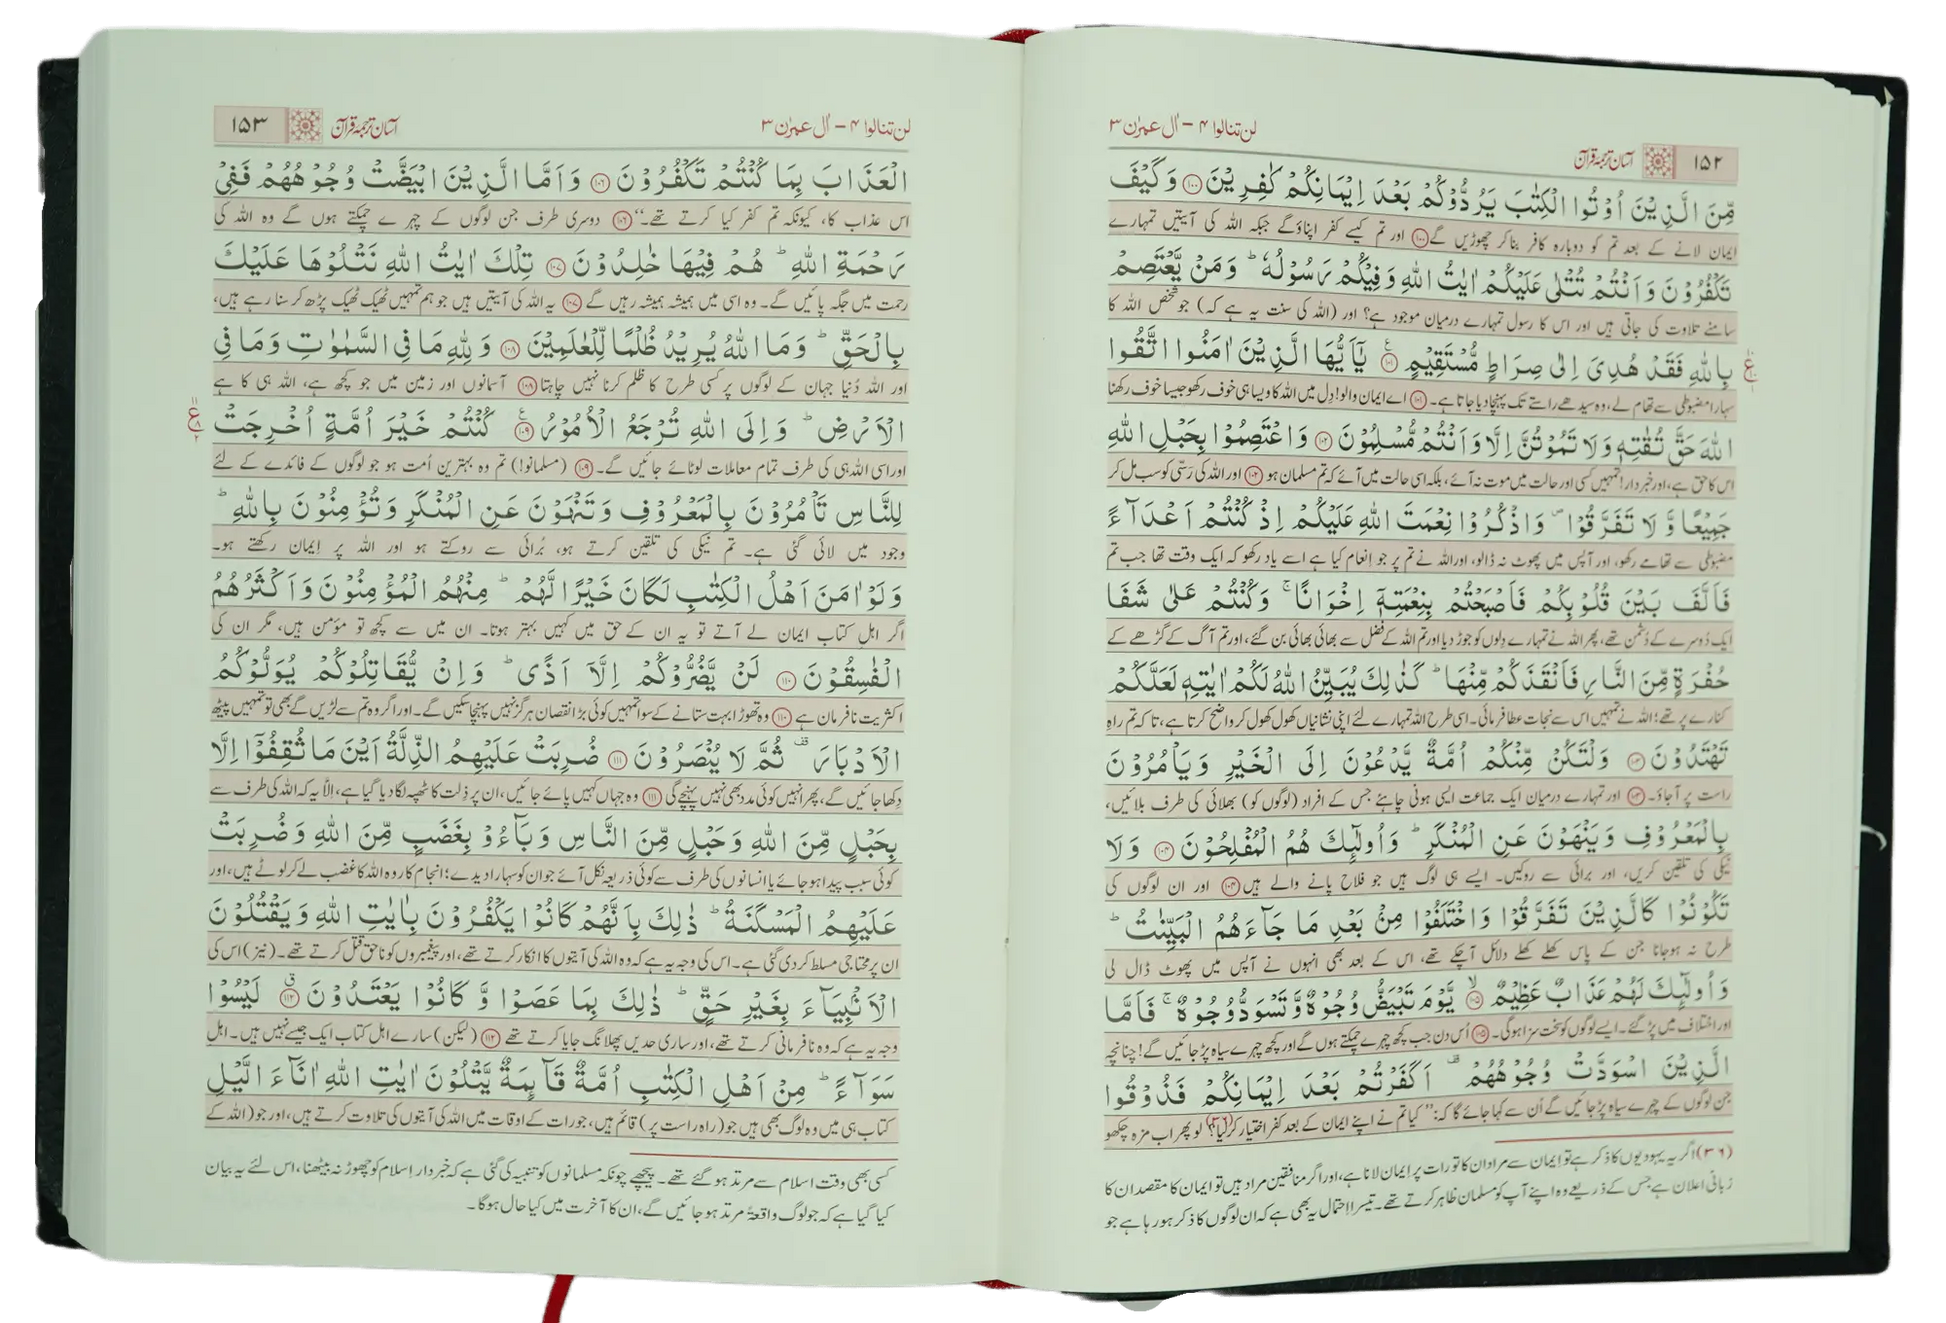 ۱۵۲
آسان ترجمۂ قرآن
لن تنالوا ۴ – اٰل عمرٰن ۳
مِّنَ الَّذِيْنَ اُوْتُوا الْكِتٰبَ يَرُدُّوْكُمْ بَعْدَ اِيْمَانِكُمْ كٰفِرِيْنَ ۝۱۰۰ وَكَيْفَ
ایمان لانے کے بعد تم کو دوبارہ کافر بناکر چھوڑیں گے ۝۱۰۰ اور تم کیسے کفر اپناؤ گے جبکہ اللہ کی آیتیں تمہارے
تَكْفُرُوْنَ وَاَنْتُمْ تُتْلٰى عَلَيْكُمْ اٰيٰتُ اللّٰهِ وَفِيْكُمْ رَسُوْلُهٗ ؕ وَمَنْ يَّعْتَصِمْ
سامنے تلاوت کی جاتی ہیں اور اس کا رسول تمہارے درمیان موجود ہے؟ اور (اللہ کی سنت یہ ہے کہ) جو شخص اللہ کا
بِاللّٰهِ فَقَدْ هُدِىَ اِلٰى صِرَاطٍ مُّسْتَقِيْمٍ ۝۱۰۱ يٰۤاَيُّهَا الَّذِيْنَ اٰمَنُوا اتَّقُوا
سہارا مضبوطی سے تھام لے، وہ سیدھے راستے تک پہنچادیا جاتا ہے۔ ۝۱۰۱ اے ایمان والو! دِل میں اللہ کا ویسا ہی خوف رکھو جیسا خوف رکھنا
اللّٰهَ حَقَّ تُقٰتِهٖ وَلَا تَمُوْتُنَّ اِلَّا وَاَنْتُمْ مُّسْلِمُوْنَ ۝۱۰۲ وَاعْتَصِمُوْا بِحَبْلِ اللّٰهِ
اس کا حق ہے، اور خبردار! تمہیں کسی اور حالت میں موت نہ آئے، بلکہ اسی حالت میں آئے کہ تم مسلمان ہو ۝۱۰۲ اور اللہ کی رَسّی کو سب مل کر
جَمِيْعًا وَّلَا تَفَرَّقُوْا ۪ وَاذْكُرُوْا نِعْمَتَ اللّٰهِ عَلَيْكُمْ اِذْ كُنْتُمْ اَعْدَآءً
مضبوطی سے تھامے رکھو، اور آپس میں پھوٹ نہ ڈالو، اور اللہ نے تم پر جو اِنعام کیا ہے اسے یاد رکھو کہ ایک وقت تھا جب تم
فَاَلَّفَ بَيْنَ قُلُوْبِكُمْ فَاَصْبَحْتُمْ بِنِعْمَتِهٖۤ اِخْوَانًا ۚ وَكُنْتُمْ عَلٰى شَفَا
ایک دُوسرے کے دُشمن تھے، پھر اللہ نے تمہارے دِلوں کو جوڑ دیا اور تم اللہ کے فضل سے بھائی بھائی بن گئے، اور تم آگ کے گڑھے کے
حُفْرَةٍ مِّنَ النَّارِ فَاَنْقَذَكُمْ مِّنْهَا ؕ كَذٰلِكَ يُبَيِّنُ اللّٰهُ لَكُمْ اٰيٰتِهٖ لَعَلَّكُمْ
کنارے پر تھے؛ اللہ نے تمہیں اس سے نجات عطا فرمائی۔ اسی طرح اللہ تمہارے لئے اپنی نشانیاں کھول کھول کر واضح کرتا ہے، تاکہ تم راہِ
تَهْتَدُوْنَ ۝۱۰۳ وَلْتَكُنْ مِّنْكُمْ اُمَّةٌ يَّدْعُوْنَ اِلَى الْخَيْرِ وَيَاْمُرُوْنَ
راست پر آجاؤ۔ ۝۱۰۳ اور تمہارے درمیان ایک جماعت ایسی ہونی چاہئے جس کے افراد (لوگوں کو) بھلائی کی طرف بلائیں،
بِالْمَعْرُوْفِ وَيَنْهَوْنَ عَنِ الْمُنْكَرِ ؕ وَاُولٰٓئِكَ هُمُ الْمُفْلِحُوْنَ ۝۱۰۴ وَلَا
نیکی کی تلقین کریں، اور برائی سے روکیں۔ ایسے ہی لوگ ہیں جو فلاح پانے والے ہیں ۝۱۰۴ اور ان لوگوں کی
تَكُوْنُوْا كَالَّذِيْنَ تَفَرَّقُوْا وَاخْتَلَفُوْا مِنْۢ بَعْدِ مَا جَآءَهُمُ الْبَيِّنٰتُ ؕ
طرح نہ ہوجانا جن کے پاس کھلے کھلے دلائل آچکے تھے، اس کے بعد بھی انہوں نے آپس میں پھوٹ ڈال لی
وَاُولٰٓئِكَ لَهُمْ عَذَابٌ عَظِيْمٌ ۝۱۰۵ يَّوْمَ تَبْيَضُّ وُجُوْهٌ وَّتَسْوَدُّ وُجُوْهٌ ۚ فَاَمَّا
اور اختلاف میں پڑ گئے۔ ایسے لوگوں کو سخت سزا ہوگی۔ ۝۱۰۵ اُس دن جب کچھ چہرے چمکتے ہوں گے اور کچھ چہرے سیاہ پڑجائیں گے! چنانچہ
الَّذِيْنَ اسْوَدَّتْ وُجُوْهُهُمْ ۫ اَكَفَرْتُمْ بَعْدَ اِيْمَانِكُمْ فَذُوْقُوا
جن لوگوں کے چہرے سیاہ پڑجائیں گے اُن سے کہا جائے گا کہ: ’’کیا تم نے اپنے ایمان کے بعد کفر اختیار کرلیا؟(۳۶) لو پھر اب مزہ چکھو
(۳۶) اگر یہ یہودیوں کا ذکر ہے تو ایمان سے مراد ان کا تورات پر ایمان لانا ہے، اور اگر منافقین مراد ہیں تو ایمان کا مقصد ان کا
زبانی اعلان ہے جس کے ذریعے وہ اپنے آپ کو مسلمان ظاہر کرتے تھے۔ تیسرا احتمال یہ بھی ہے کہ ان لوگوں کا ذکر ہورہا ہے جو
لن تنالوا ۴ – اٰل عمرٰن ۳
آسان ترجمۂ قرآن
۱۵۳
الْعَذَابَ بِمَا كُنْتُمْ تَكْفُرُوْنَ ۝۱۰۶ وَاَمَّا الَّذِيْنَ ابْيَضَّتْ وُجُوْهُهُمْ فَفِيْ
اس عذاب کا، کیونکہ تم کفر کیا کرتے تھے۔‘‘ ۝۱۰۶ دوسری طرف جن لوگوں کے چہرے چمکتے ہوں گے وہ اللہ کی
رَحْمَةِ اللّٰهِ ؕ هُمْ فِيْهَا خٰلِدُوْنَ ۝۱۰۷ تِلْكَ اٰيٰتُ اللّٰهِ نَتْلُوْهَا عَلَيْكَ
رحمت میں جگہ پائیں گے۔ وہ اسی میں ہمیشہ ہمیشہ رہیں گے ۝۱۰۷ یہ اللہ کی آیتیں ہیں جو ہم تمہیں ٹھیک ٹھیک پڑھ کر سنا رہے ہیں،
بِالْحَقِّ ؕ وَمَا اللّٰهُ يُرِيْدُ ظُلْمًا لِّلْعٰلَمِيْنَ ۝۱۰۸ وَلِلّٰهِ مَا فِي السَّمٰوٰتِ وَمَا فِي
اور اللہ دُنیا جہان کے لوگوں پر کسی طرح کا ظلم کرنا نہیں چاہتا ۝۱۰۸ آسمانوں اور زمین میں جو کچھ ہے، اللہ ہی کا ہے
الْاَرْضِ ؕ وَاِلَى اللّٰهِ تُرْجَعُ الْاُمُوْرُ ۝۱۰۹ كُنْتُمْ خَيْرَ اُمَّةٍ اُخْرِجَتْ
اور اسی اللہ ہی کی طرف تمام معاملات لوٹائے جائیں گے۔ ۝۱۰۹ (مسلمانو!) تم وہ بہترین اُمت ہو جو لوگوں کے فائدے کے لئے
لِلنَّاسِ تَاْمُرُوْنَ بِالْمَعْرُوْفِ وَتَنْهَوْنَ عَنِ الْمُنْكَرِ وَتُؤْمِنُوْنَ بِاللّٰهِ ؕ
وجود میں لائی گئی ہے۔ تم نیکی کی تلقین کرتے ہو، بُرائی سے روکتے ہو اور اللہ پر اِیمان رکھتے ہو۔
وَلَوْ اٰمَنَ اَهْلُ الْكِتٰبِ لَكَانَ خَيْرًا لَّهُمْ ؕ مِنْهُمُ الْمُؤْمِنُوْنَ وَاَكْثَرُهُمُ
اگر اہلِ کتاب ایمان لے آتے تو یہ ان کے حق میں کہیں بہتر ہوتا۔ ان میں سے کچھ تو مؤمن ہیں، مگر ان کی
الْفٰسِقُوْنَ ۝۱۱۰ لَنْ يَّضُرُّوْكُمْ اِلَّاۤ اَذًى ؕ وَاِنْ يُّقَاتِلُوْكُمْ يُوَلُّوْكُمُ
اکثریت نافرمان ہے ۝۱۱۰ وہ تھوڑا بہت ستانے کے سوا تمہیں کوئی بڑا نقصان ہرگز نہیں پہنچاسکیں گے۔ اور اگر وہ تم سے لڑیں گے بھی تو تمہیں پیٹھ
الْاَدْبَارَ ۫ ثُمَّ لَا يُنْصَرُوْنَ ۝۱۱۱ ضُرِبَتْ عَلَيْهِمُ الذِّلَّةُ اَيْنَ مَا ثُقِفُوْۤا اِلَّا
دِکھا جائیں گے، پھر انہیں کوئی مدد بھی نہیں پہنچے گی ۝۱۱۱ وہ جہاں کہیں پائے جائیں، ان پر ذِلت کا ٹھپہ لگا دیا گیا ہے، اِلاَّ یہ کہ اللہ کی طرف سے
بِحَبْلٍ مِّنَ اللّٰهِ وَحَبْلٍ مِّنَ النَّاسِ وَبَآءُوْ بِغَضَبٍ مِّنَ اللّٰهِ وَضُرِبَتْ
کوئی سبب پیدا ہوجائے یا انسانوں کی طرف سے کوئی ذریعہ نکل آئے جو ان کو سہارا دیدے؛ انجام کار وہ اللہ کا غضب لے کر لوٹے ہیں، اور
عَلَيْهِمُ الْمَسْكَنَةُ ؕ ذٰلِكَ بِاَنَّهُمْ كَانُوْا يَكْفُرُوْنَ بِاٰيٰتِ اللّٰهِ وَيَقْتُلُوْنَ
ان پر محتاجی مسلط کردی گئی ہے۔ اس کی وجہ یہ ہے کہ وہ اللہ کی آیتوں کا انکار کرتے تھے، اور پیغمبروں کو ناحق قتل کرتے تھے۔ (نیز) اس کی
الْاَنْۢبِيَآءَ بِغَيْرِ حَقٍّ ؕ ذٰلِكَ بِمَا عَصَوْا وَّكَانُوْا يَعْتَدُوْنَ ۝۱۱۲ لَيْسُوْا
وجہ یہ ہے کہ وہ نافرمانی کرتے تھے، اور ساری حدیں پھلانگ جایا کرتے تھے ۝۱۱۲ (لیکن) سارے اہلِ کتاب ایک جیسے نہیں ہیں۔ اہلِ
سَوَآءً ؕ مِنْ اَهْلِ الْكِتٰبِ اُمَّةٌ قَآئِمَةٌ يَّتْلُوْنَ اٰيٰتِ اللّٰهِ اٰنَآءَ الَّيْلِ
کتاب ہی میں وہ لوگ بھی ہیں جو (راہِ راست پر) قائم ہیں، جو رات کے اوقات میں اللہ کی آیتوں کی تلاوت کرتے ہیں، اور جو (اللہ کے
کسی بھی وقت اسلام سے مرتد ہوگئے تھے۔ پیچھے چونکہ مسلمانوں کو تنبیہ کی گئی ہے کہ خبردار اِسلام کو چھوڑ نہ بیٹھنا، اس لئے یہ بیان
کیا گیا ہے کہ جو لوگ واقعۃً مرتد ہوجائیں گے، ان کا آخرت میں کیا حال ہوگا۔